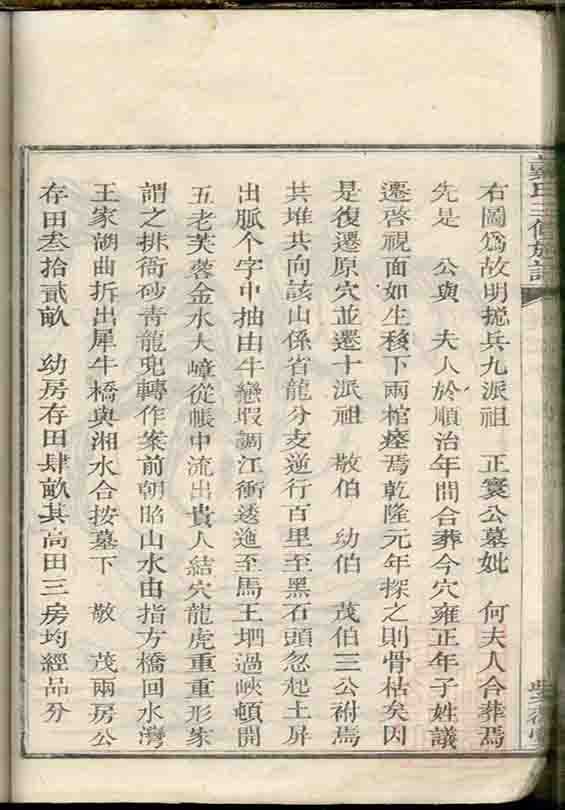 右圖爲故明總兵九派祖 正寰公墓妣 何夫人合葬焉
先是 公與 夫人於順治年間合葬今穴雍正年子姓議
遷啓視面如生移下兩棺瘞焉乾隆元年探之則骨枯矣因
是復遷原穴並遷十派祖 敬伯 幼伯 茂伯三公祔焉
共堆共向該山係省龍分支逆行百里至黑石頭忽起土屏
出脈个字中抽由牛巒蝦調江衝透迤至馬王堋過峽頓開
五老芙蓉金水大嶂從帳中流出貴人結穴龍虎重重形家
謂之排衙砂青龍兜轉作案前朝昭山水由指方橋回水灣
王家湖曲拆出犀牛橋與湘水合按墓下 敬 茂兩房公
存田叁拾貳畝 幼房存田肆畝其高田三房均經品分
氏三修族譜